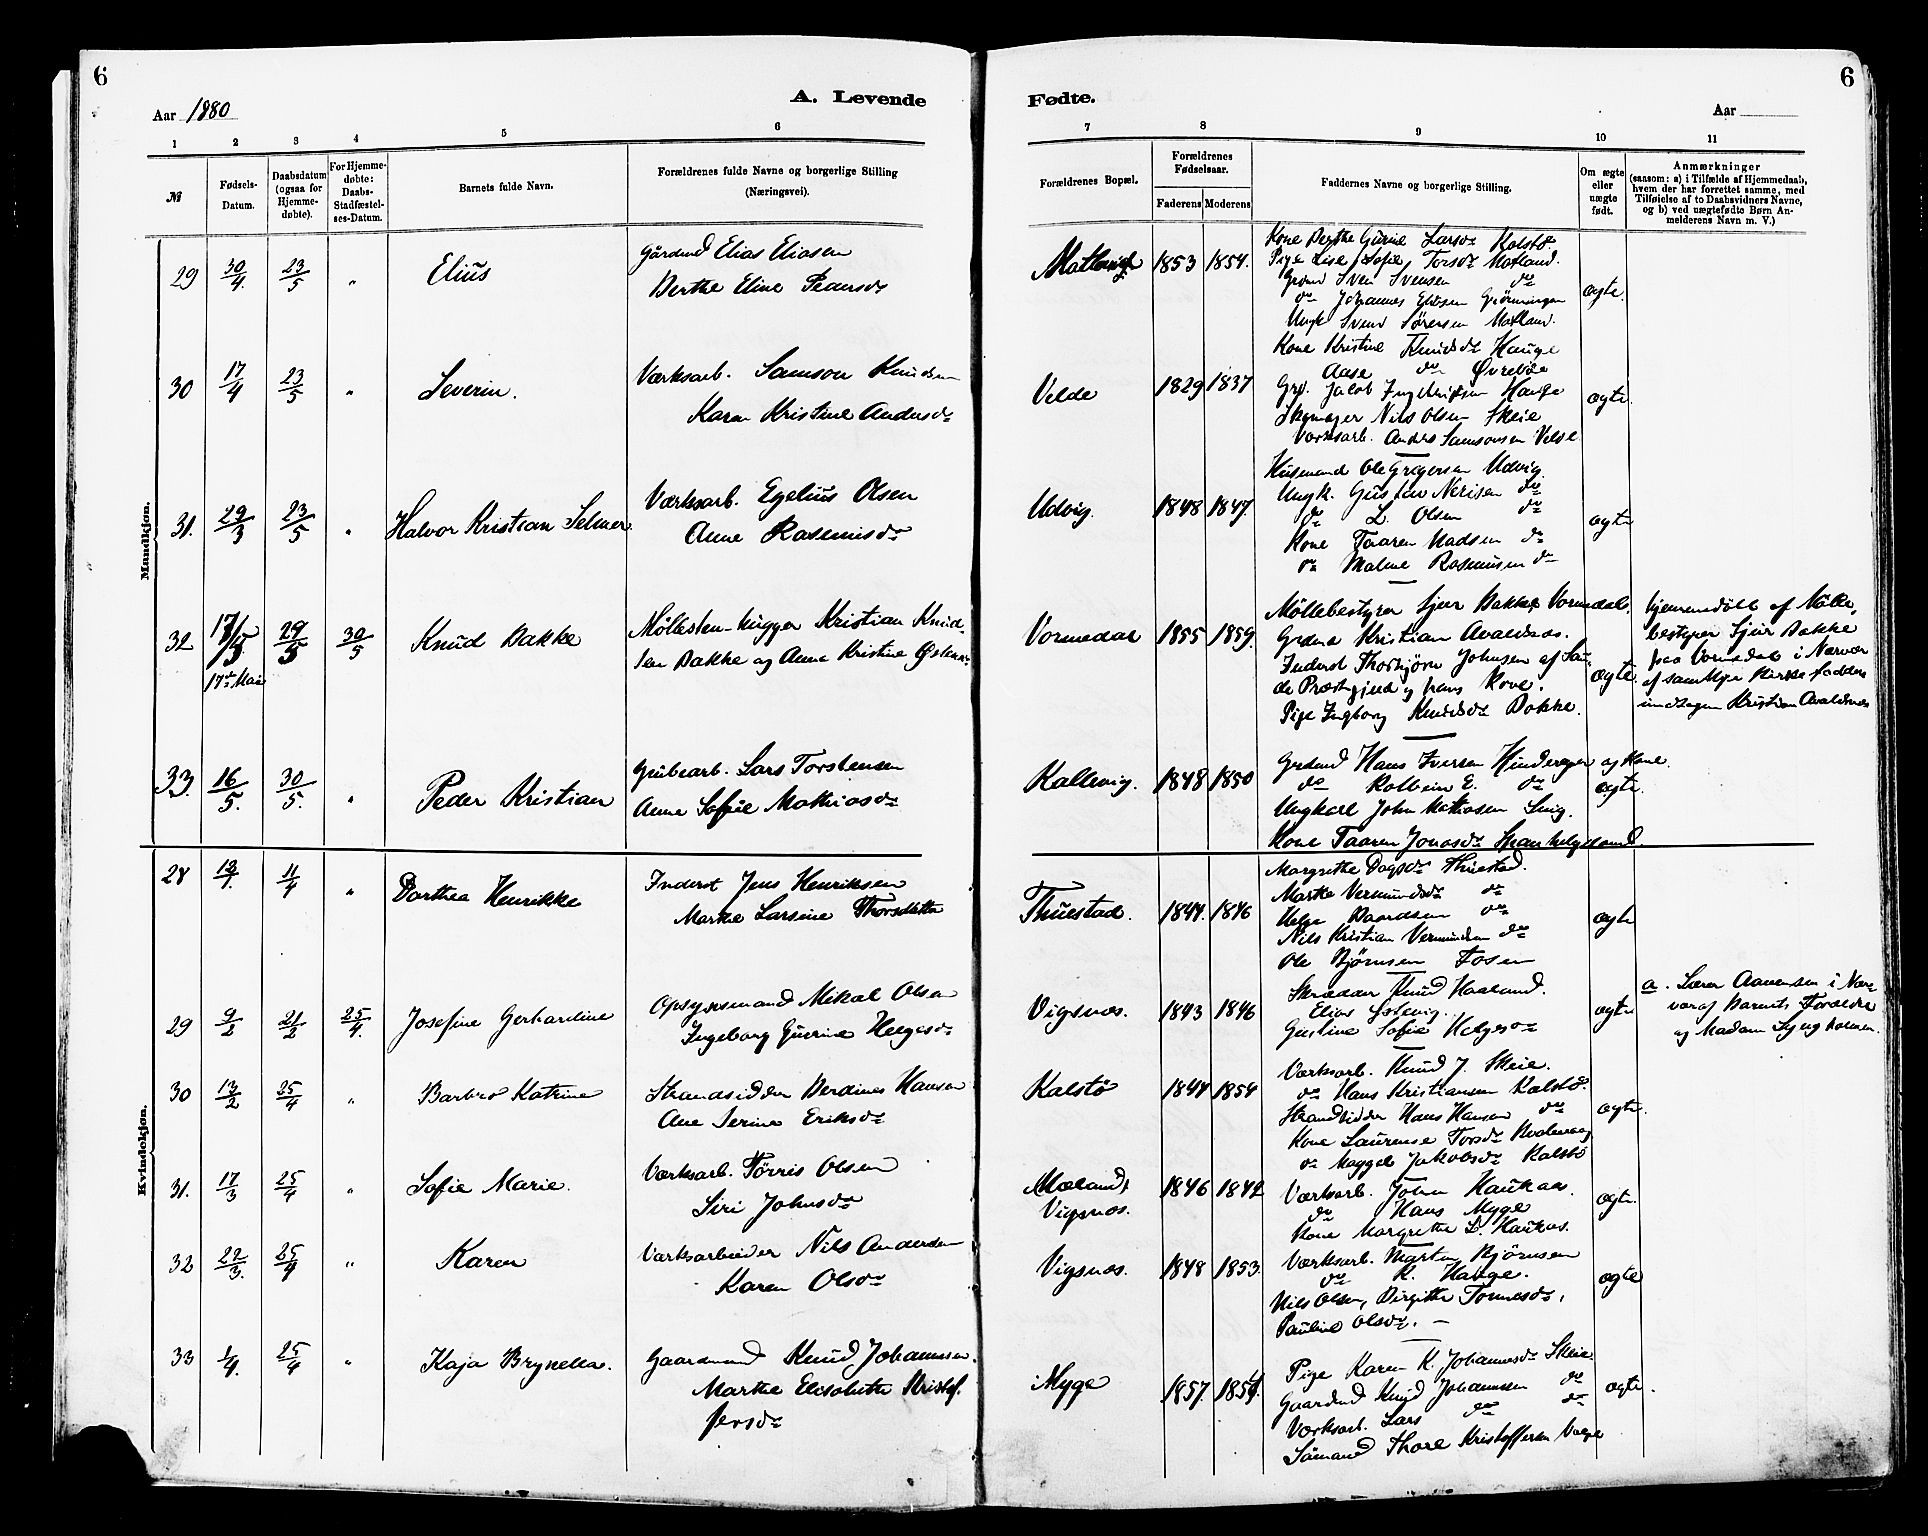 6
6
Aar 1880
A. Levende
Fødte.
Aar
1
2
3
4
5
6
7
8
9
10
11
№
Fødsels-
Datum.
Daabsdatum
(ogsaa for
Hjemme-
døbte).
For Hjemme-
døbte:
Daabs-
Stadfæstel-
ses-Datum.
Barnets fulde Navn.
Forældrenes fulde Navne og borgerlige Stilling
(Næringsvei).
Forældrenes Bopæl.
Forældrenes
Fødselsaar.
Faderens
Moderens
Faddernes Navne og borgerlige Stilling.
Om ægte
eller
uægte
født.
Anmærkninger
(saasom: a) i Tilfælde af Hjemmedaab,
hvem der har forrettet samme, med
Tilføielse af to Daabsvidners Navne,
og b) ved uægtefødte Børn An-
melderens Navn m. V.)
Mandkjøn.
29 30/4 23/5 " Elius
Gårdmd Elias Eliasen
Berthe Eline
1853 1854.
Kone Berthe Gurine Larsdr Kolstø.
Pige Lise Sofie Torsdr Matland.
Grdmd Sven Svensen do
do Johannes Eliasen
Ungk Svend Sørensen Matland.
ægte.
30 17/4 23/5 " Severin.
Værksarb. Samson Knudsen
Karen Kristine Andersdr
Velde 1829 1837
Kone Kristine Knudsdr Hauge
Aase do
Grd. Jacob Hauge
Skomager Nils Olsen Skeie
Værksarb. Anders Samsonsen Velde.
ægte.
31. 29/3 23/5 " Halvor Kristian Selmer
Værksarb. Egelius Olsen
Anne Rasmusdr
Udvig. 1848 1847.
Husmand Ole Gregersen Udvig
Ungk. Gustav Nerisen do
do L. Olsen do
Kone Taaren Madsen do
do Malene Rasmusen do
ægte
32 17/5 29/5 30/5 Knud Bakke
17de Mai
Møllesten-hugger Kristian Knud-
sen Bakke og Anne Kristine
Vormedal 1855 1859.
Møllebestyrer Sjur Bakke Vormedal.
Grdmd Kristian Avaldsnæs.
Inderst Thorbjørn Johnsen af Sau-
de Præstegjeld og hans Kone.
Pige Ingborg Knudsdr Bakke.
ægte.
hjemmedøbt af Mølle-
bestyrer Sjur Bakke
paa Vormedal i Nærvær
af samtlige Faddere
undtagen Kristian Avaldsnæs
33. 16/5. 30/5. " Peder Kristian
Grubearb. Lars Torstensen
Anne Sofie Mathiasdr
Kallevig. 1848 1850
Grdmd Hans Iversen og Kone.
do Kolbein E. do
Ungkarl John Mathiasen
Kone Taaren Jonasdr
ægte.
Kvindekjøn.
28 11/4 " Dorthea Henrikke
Inderst Jens Henriksen
Marthe Larsine Thorsdatter
Thuestad. 1844. 1846
Margrethe Dagsdr Thuestad.
Marthe Vermundsdr do
Helge Baardsen do
Nils Kristian Vermundsen do
Ole Bjørnsen Fosen
ægte
29 9/2 21/2 25/4. Josefine Gerhardine
Opsynsmand Mikal Olsen
Ingeborg Gurine Helgesdr
Vigsnæs. 1843 1846
Skrædder Knud Haaland.
Elias
Gustine Sofie Helgesdr
ægte
a. Lærer Aanensen i Nær-
vær af Barnets Forældre
og Madam
30 13/2 25/4 " Barbro Katrine
Strandsidder Berdines Hansen
Ane Serine Eriksdr
Kalstø 1844 1854
Værksarb. Knud J. Skeie.
do Hans Kristiansen Kalstø.
Strandsidder Hans Hansen do
Kone Laurense Torsdr
do Maggel Jakobsdr Kalstø
ægte.
31. 17/3 25/4 " Sofie Marie.
Værksarb. Tørris Olsen
Siri Johnsdr
Mæland,
Vigsnæs.
1846 1842
Værksarb. John Haukaas.
do Hans Myge
Kone Margrethe L. Haukas.
ægte.
32 22/3. 25/4 " Karen
Værksarbeider Nils Andersen
Karen Olsdr
Vigsnæs. 1848 1853.
Værksarb. Marten Bjørnsen
do K. Hauge.
Nils Olsen, Birgitte Tormesdr,
Pauline Olsdr. —
ægte
33 1/4 25/4 " Kaja Brynella.
Gaardmand Knud Johannesen.
Marthe Elisabeth Kristof-
fersdr
Myge 1857. 1854.
Pige Karen K. Johannesdr Skeie
Gaardmd Knud Johannsen do
Værksarb. Lars do do
Sømand Thore Kristoffersen
ægte.